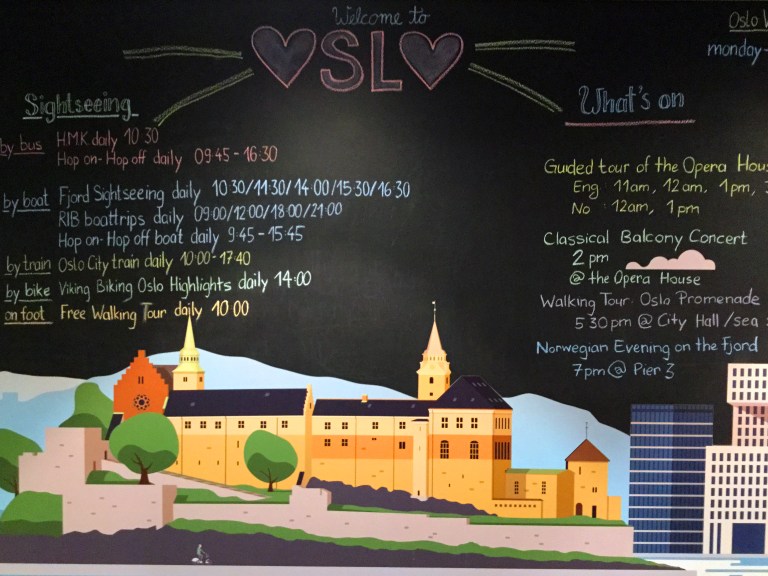 Welcome to
OSLO
Sightseeing
by bus HMK daily 10 30
Hop on-Hop off daily 09:45 - 16:30
by boat Fjord Sightseeing daily 10 30/11:30/14:00/15:30/16:30
RIB boattrips daily 09:00/12:00/18:00/21:00
Hop on-Hop off boat daily 9:45 - 15:45
by train Oslo City train daily 10:00 - 17:40
by bike Viking Biking Oslo Highlights daily 14:00
on foot Free Walking Tour daily 10:00
Oslo
monday-
What's on
Guided tour of the Opera House
Eng : 11am, 12am, 1pm,
No : 12am, 1pm
Classical Balcony Concert
2 pm
@ the Opera House
Walking Tour: Oslo Promenade
5 30 pm @ City Hall / sea
Norwegian Evening on the Fjord
7pm @ Pier 3